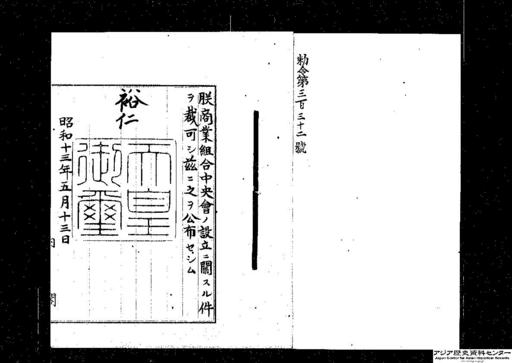 勅令第三百三十二號
朕商業組合中央會ノ設立ニ關スル件
ヲ裁可シ茲ニ之ヲ公布セシム
裕仁
天皇
御璽
昭和十三年五月十三日
内閣
アジア歴史資料センター
Japan Center for Asian Historical Records